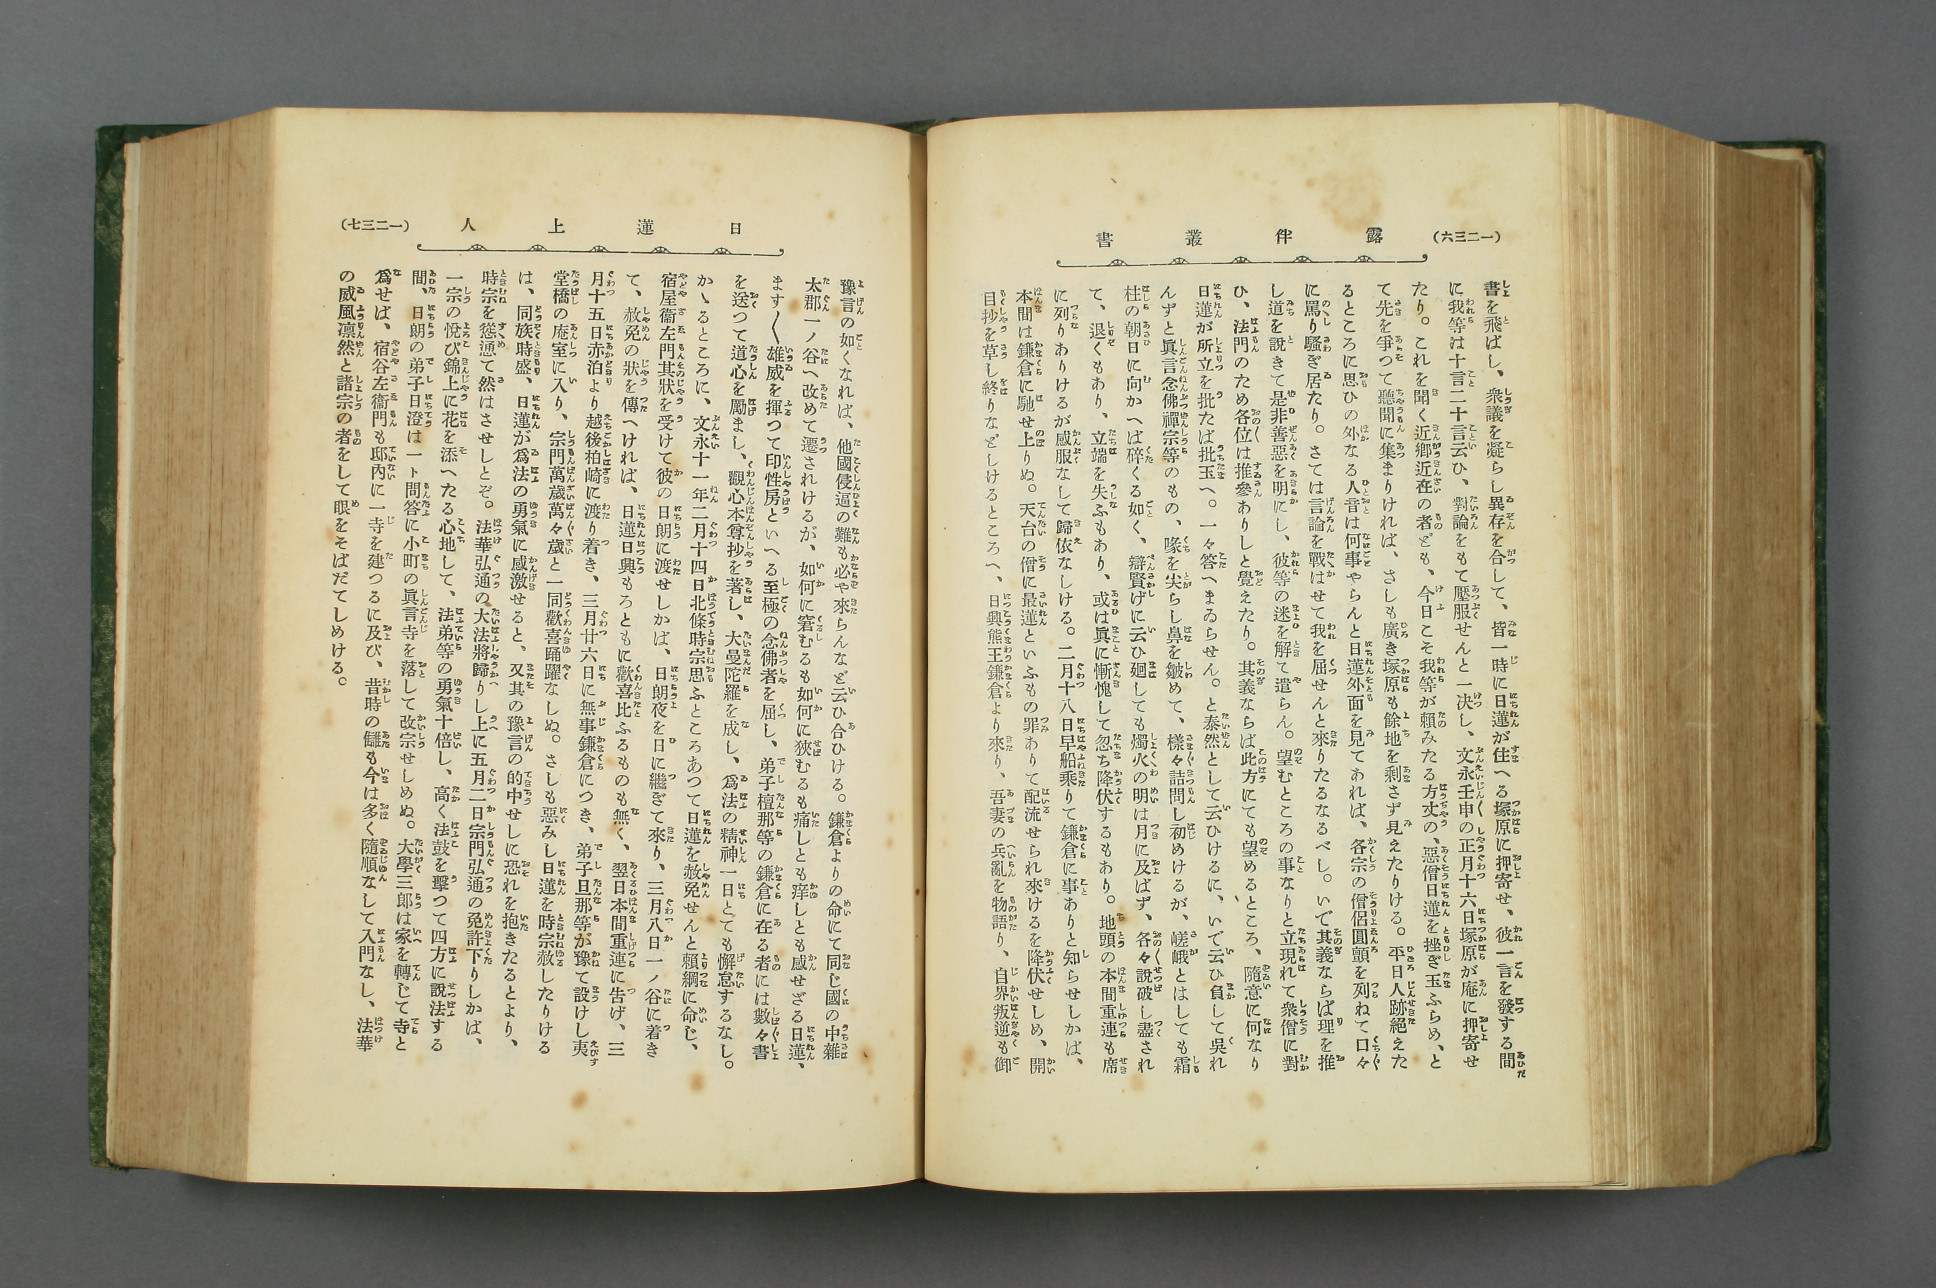 (一二三六)
露伴叢書
書を飛ばし、衆議を凝らし異存を合して、皆一時に日蓮が住へる塚原に押寄せ、彼一言を發する間
に我等は十言二十言云ひ、對論をもて壓服せんと一決し、文永壬申の正月十六日塚原が庵に押寄せ
たり。これを聞く近鄉近在の者ども、今日こそ我等が賴みたる方丈の、惡僧日蓮を挫ぎ玉ふらめ、と
て先を爭つて聽聞に集まりければ、さしも廣き塚原も餘地を剩さず見えたりける。平日人跡絕えた
るところに思ひの外なる人音は何事やらんと日蓮外面を見てあれば、各宗の僧侶圓顱を列ねて口々
に罵り騷ぎ居たり。さては言論を戰はせて我を屈せんと來りたるなるべし。いで其義ならば理を推
し道を說きて是非善惡を明にし、彼等の迷を解て遣らん。望むところの事なりと立現れて衆僧に對
ひ、法門のため各位は推參ありしと覺えたり。其義ならば此方にても望めるところ、隨意に何なり
日蓮が所立を批たば批玉へ。一々答へまゐらせん。と泰然として云ひけるに、いで云ひ負して吳れ
んずと眞言念佛禪宗等のもの、喙を尖らし鼻を皺めて、樣々詰問し初めけるが、嵯峨とはしても霜
柱の朝日に向かへば碎くる如く、辯賢げに云ひ廻しても燭火の明は月に及ばず、各々說破し盡され
て、退くもあり、立端を失ふもあり、或は眞に慚愧して忽ち降伏するもあり。地頭の本間重連も席
に列りありけるが感服なして歸依なしける。二月十八日早船乘りて鎌倉に事ありと知らせしかば、
本間は鎌倉に馳せ上りぬ。天台の僧に最蓮といふもの罪ありて配流せられ來けるを降伏せしめ、開
目抄を草し終りなどしけるところへ、日興熊王鎌倉より來り、吾妻の兵亂を物語り、自界叛逆も御
日蓮上人
(一二三七)
豫言の如くなれば、他國侵逼の難も必や來らんなど云ひ合ひける。鎌倉よりの命にて同じ國の中雜
太郡一ノ谷へ改めて遷されけるが、如何に窘むるも如何に狹むるも痛しとも痒しとも感せざる日蓮、
ます〱雄威を揮つて印性房といへる至極の念佛者を屈し、弟子檀那等の鎌倉に在る者には數々書
を送つて道心を勵まし、觀心本尊抄を著し、大曼陀羅を成し、爲法の精神一日とても懈怠するなし。
かゝるところに、文永十一年二月十四日北條時宗思ふところあつて日蓮を赦免せんと賴綱に命じ、
宿屋衞左門其狀を受けて彼の日朗に渡せしかば、日朗夜を日に繼ぎて來り、三月八日一ノ谷に着き
て、赦免の狀を傳へければ、日蓮日興もろともに歡喜比ふるものも無く、翌日本間重連に吿げ、三
月十五日赤泊より越後柏崎に渡り着き、三月廿六日に無事鎌倉につき、弟子旦那等が豫て設けし夷
堂橋の庵室に入り、宗門萬歲萬々歲と一同歡喜踊躍なしぬ。さしも惡みし日蓮を時宗赦したりける
は、同族時盛、日蓮が爲法の勇氣に感激せると、又其の豫言の的中せしに恐れを抱きたるとより、
時宗を慫慂て然はさせしとぞ。法華弘通の大法將歸りし上に五月二日宗門弘通の免許下りしかば、
一宗の悅び錦上に花を添へたる心地して、法弟等の勇氣十倍し、高く法鼓を擊つて四方に說法する
間、日朗の弟子日澄は一ト問答に小町の眞言寺を落して改宗せしめぬ。大學三郎は家を轉じて寺と
爲せば、宿谷左衞門も邸內に一寺を建つるに及び、昔時の讎も今は多く隨順なして入門なし、法華
の威風凛然と諸宗の者をして眼をそばだてしめける。